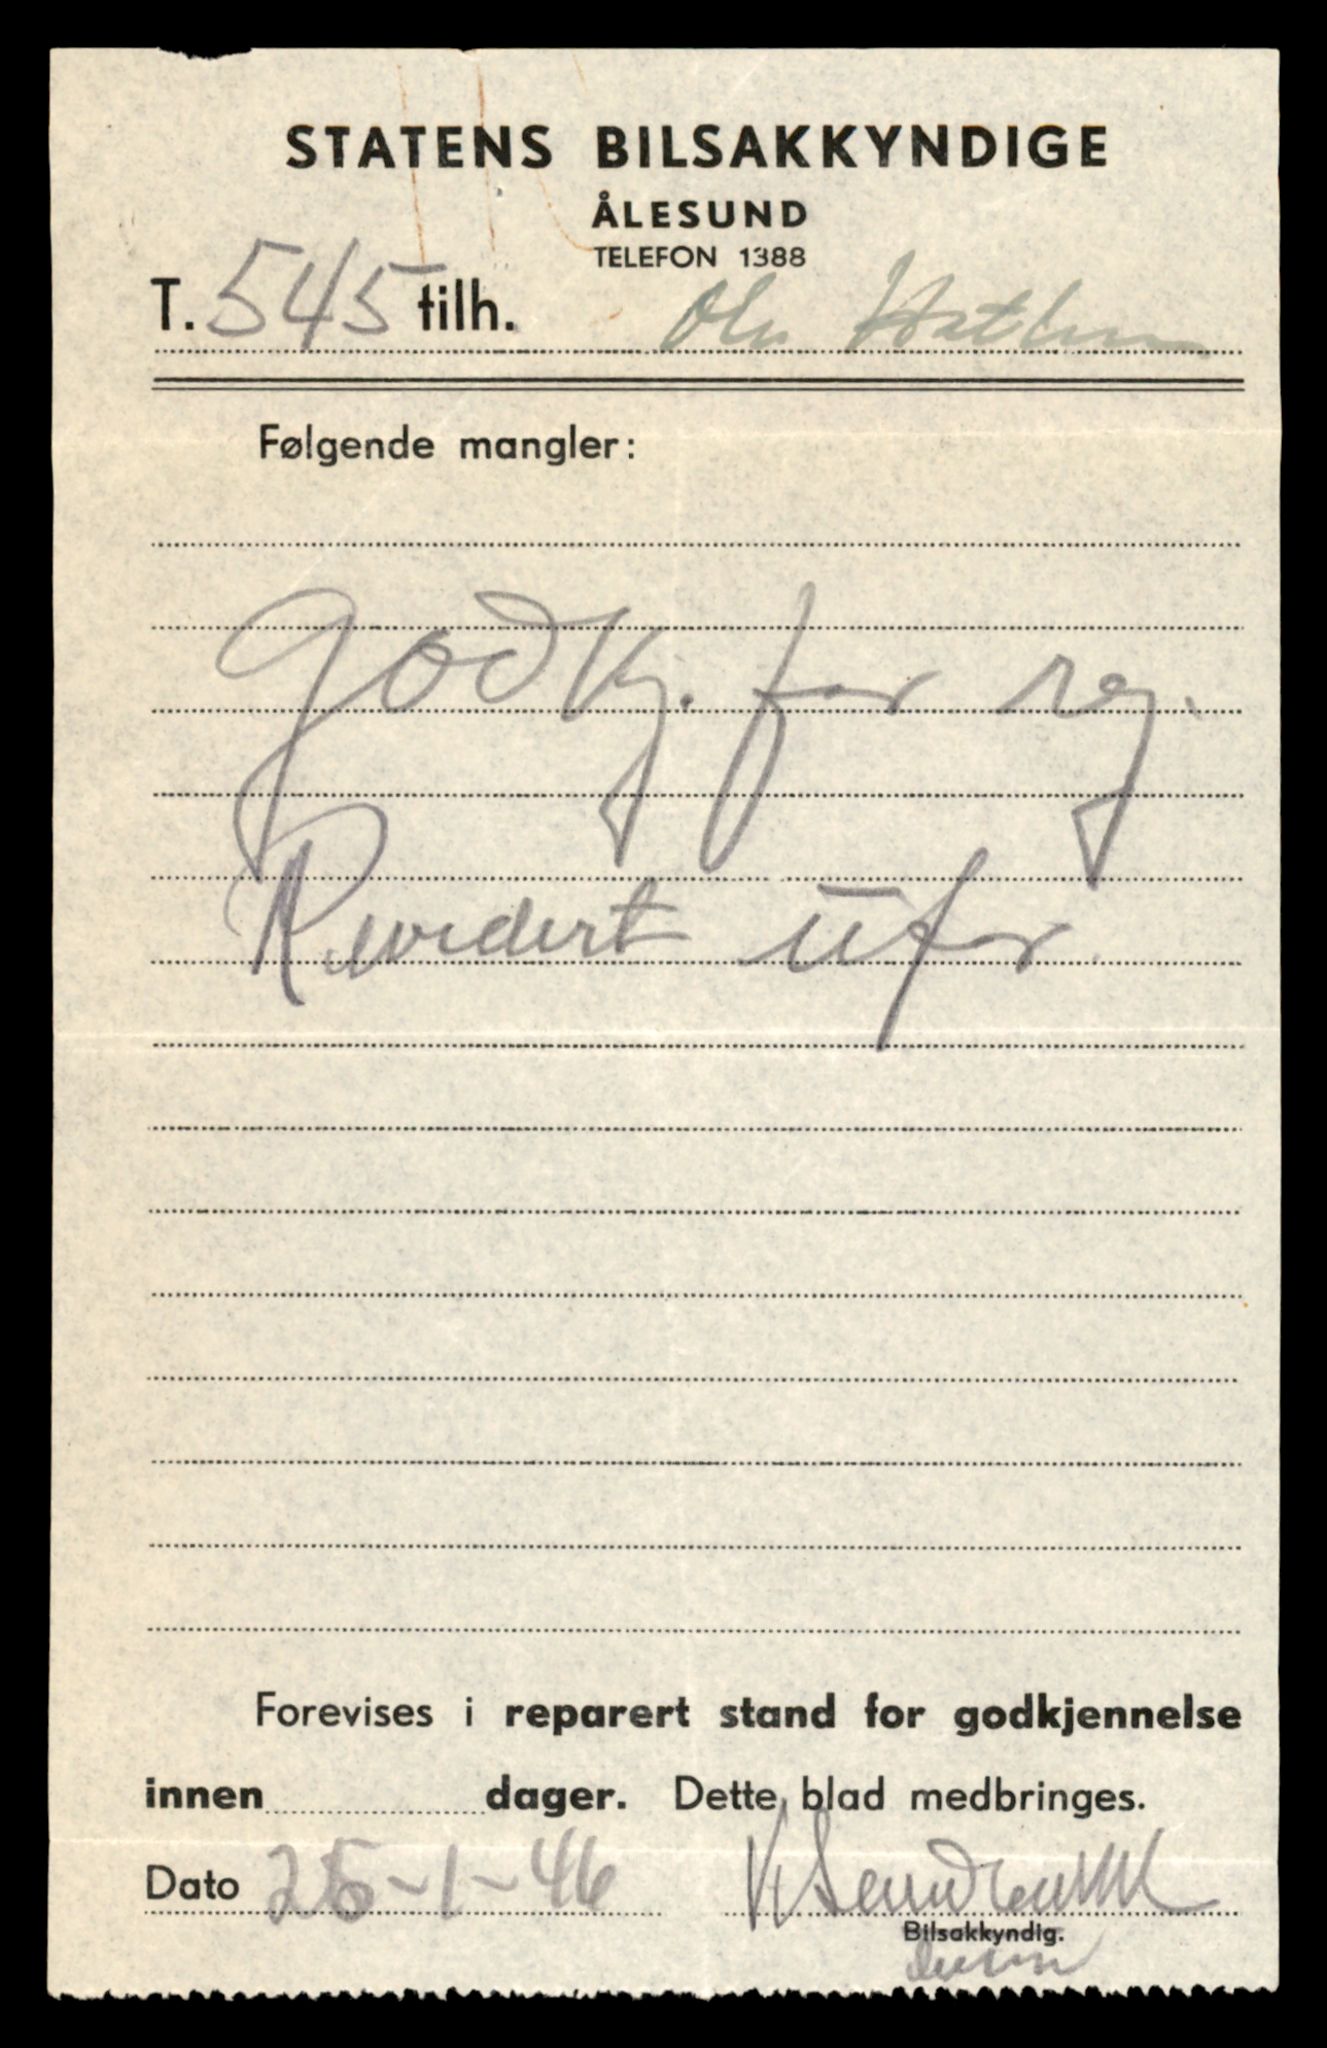 STATENS BILSAKKYNDIGE
ÅLESUND
TELEFON 1388
T. 545 tilh.
Følgende mangler:
godkj. for reg.
Revidert
Forevises i reparert stand for godkjennelse
innen dager. Dette blad medbringes.
Dato 25-1-46
Bilsakkyndig.